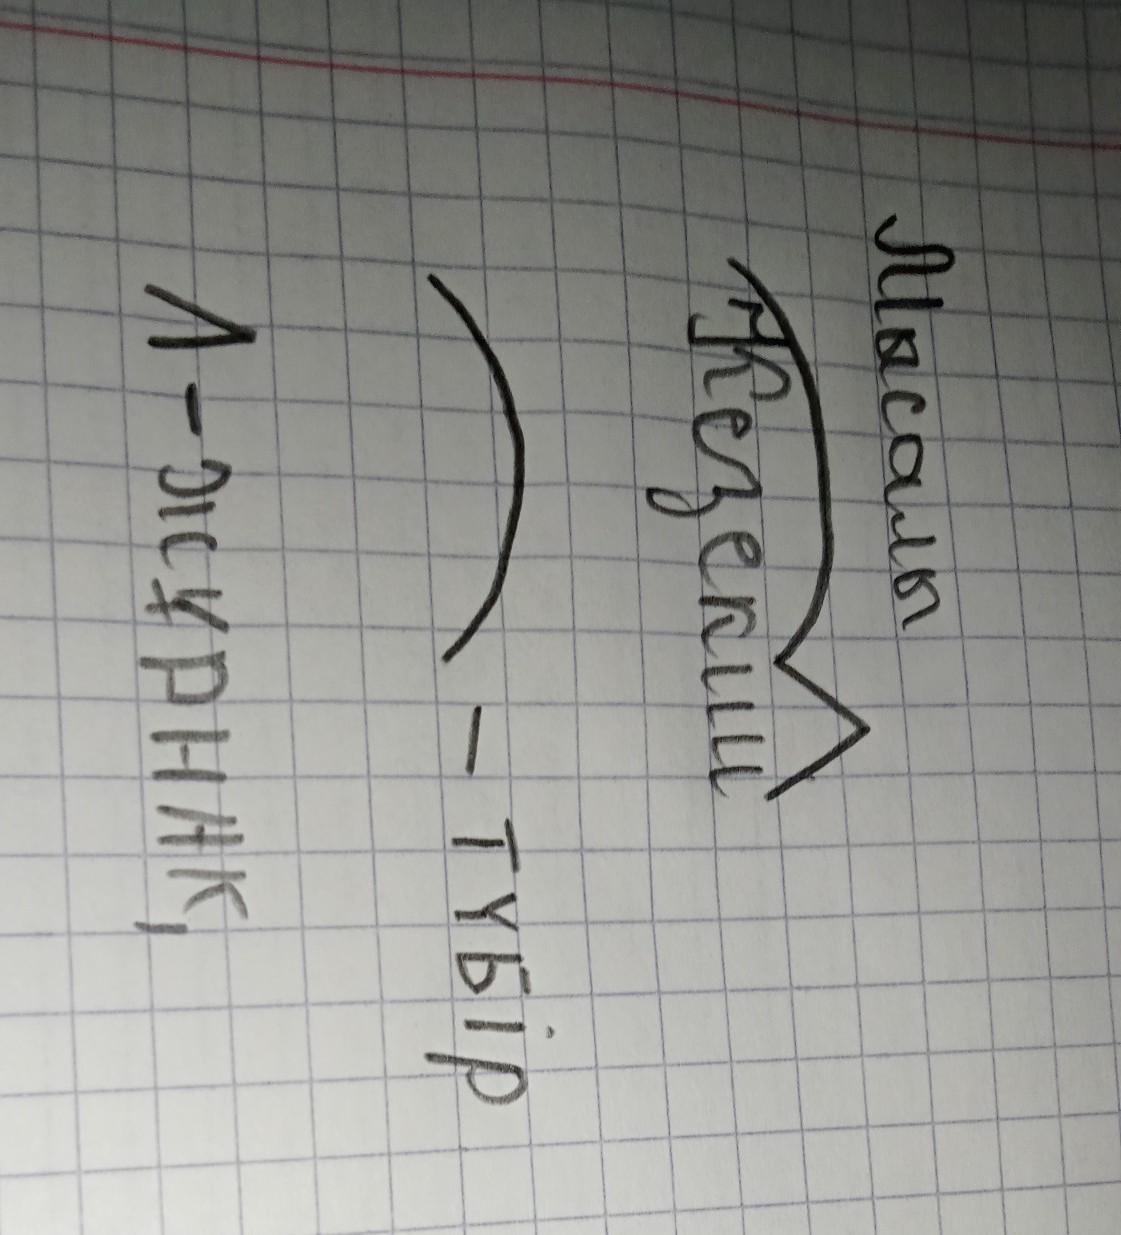 Мысалы
Кезекші
⌒ - түбір
^ - жұрнақ